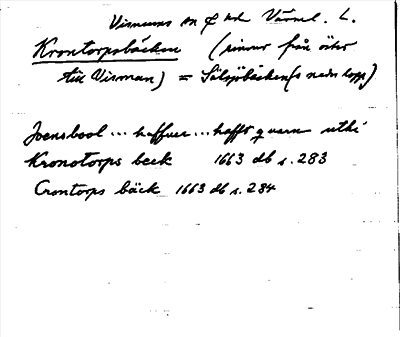 Visnums sn & hd Värml. L.
Krontorpsbäcken (rinner från öster
till Visman) = Sälsjöbäcken(s nedre lopp)
Joensbool ... haffuer ... hafft qvarn uthi
Kronotorps beck 1663 db s. 283
Crontorps bäck 1663 db s. 284